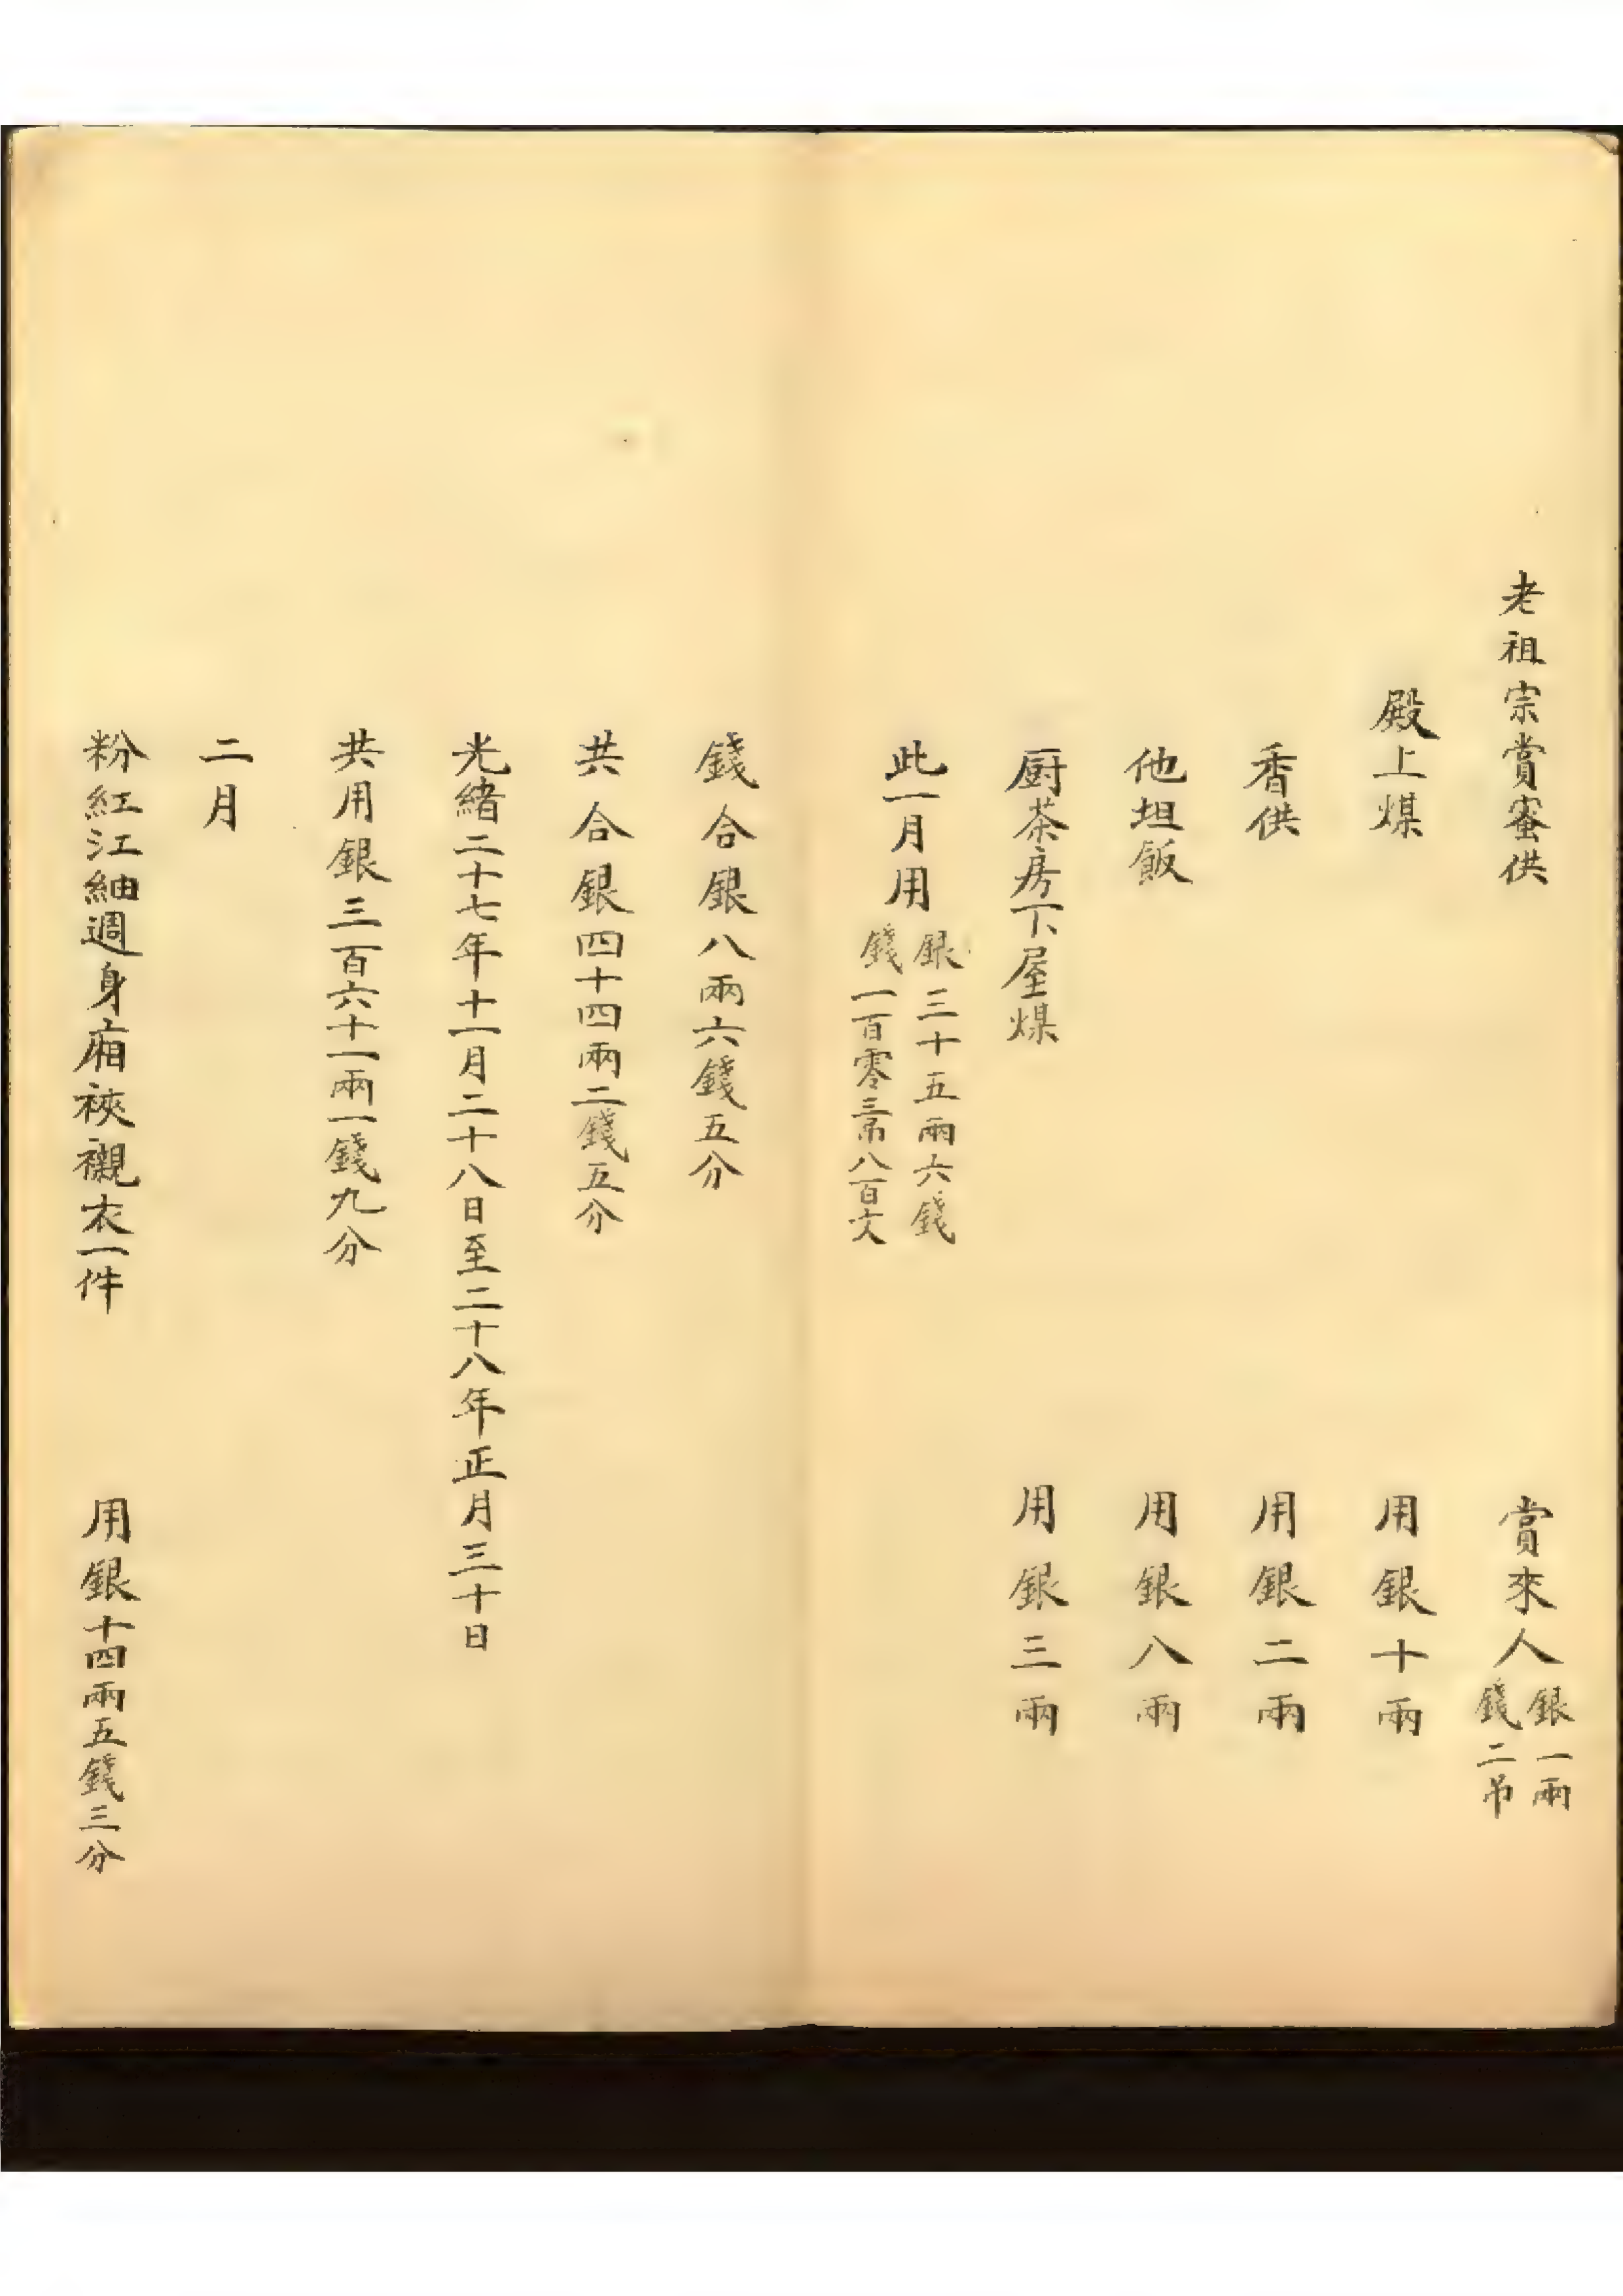 老祖宗賞蜜供　賞來人銀一兩錢二吊
殿上煤　用銀十兩
香供　用銀二兩
他坦飯　用銀八兩
厨茶房下屋煤　用銀三兩
此一月用銀三十五兩六錢錢一百零三吊八百文
錢合銀八兩六錢五分
共合銀四十四兩二錢五分
光緒二十七年十一月二十八日至二十八年正月三十日
共用銀三百六十一兩一錢九分
二月
粉紅江紬週身廂裌襯衣一件　用銀十四兩五錢三分